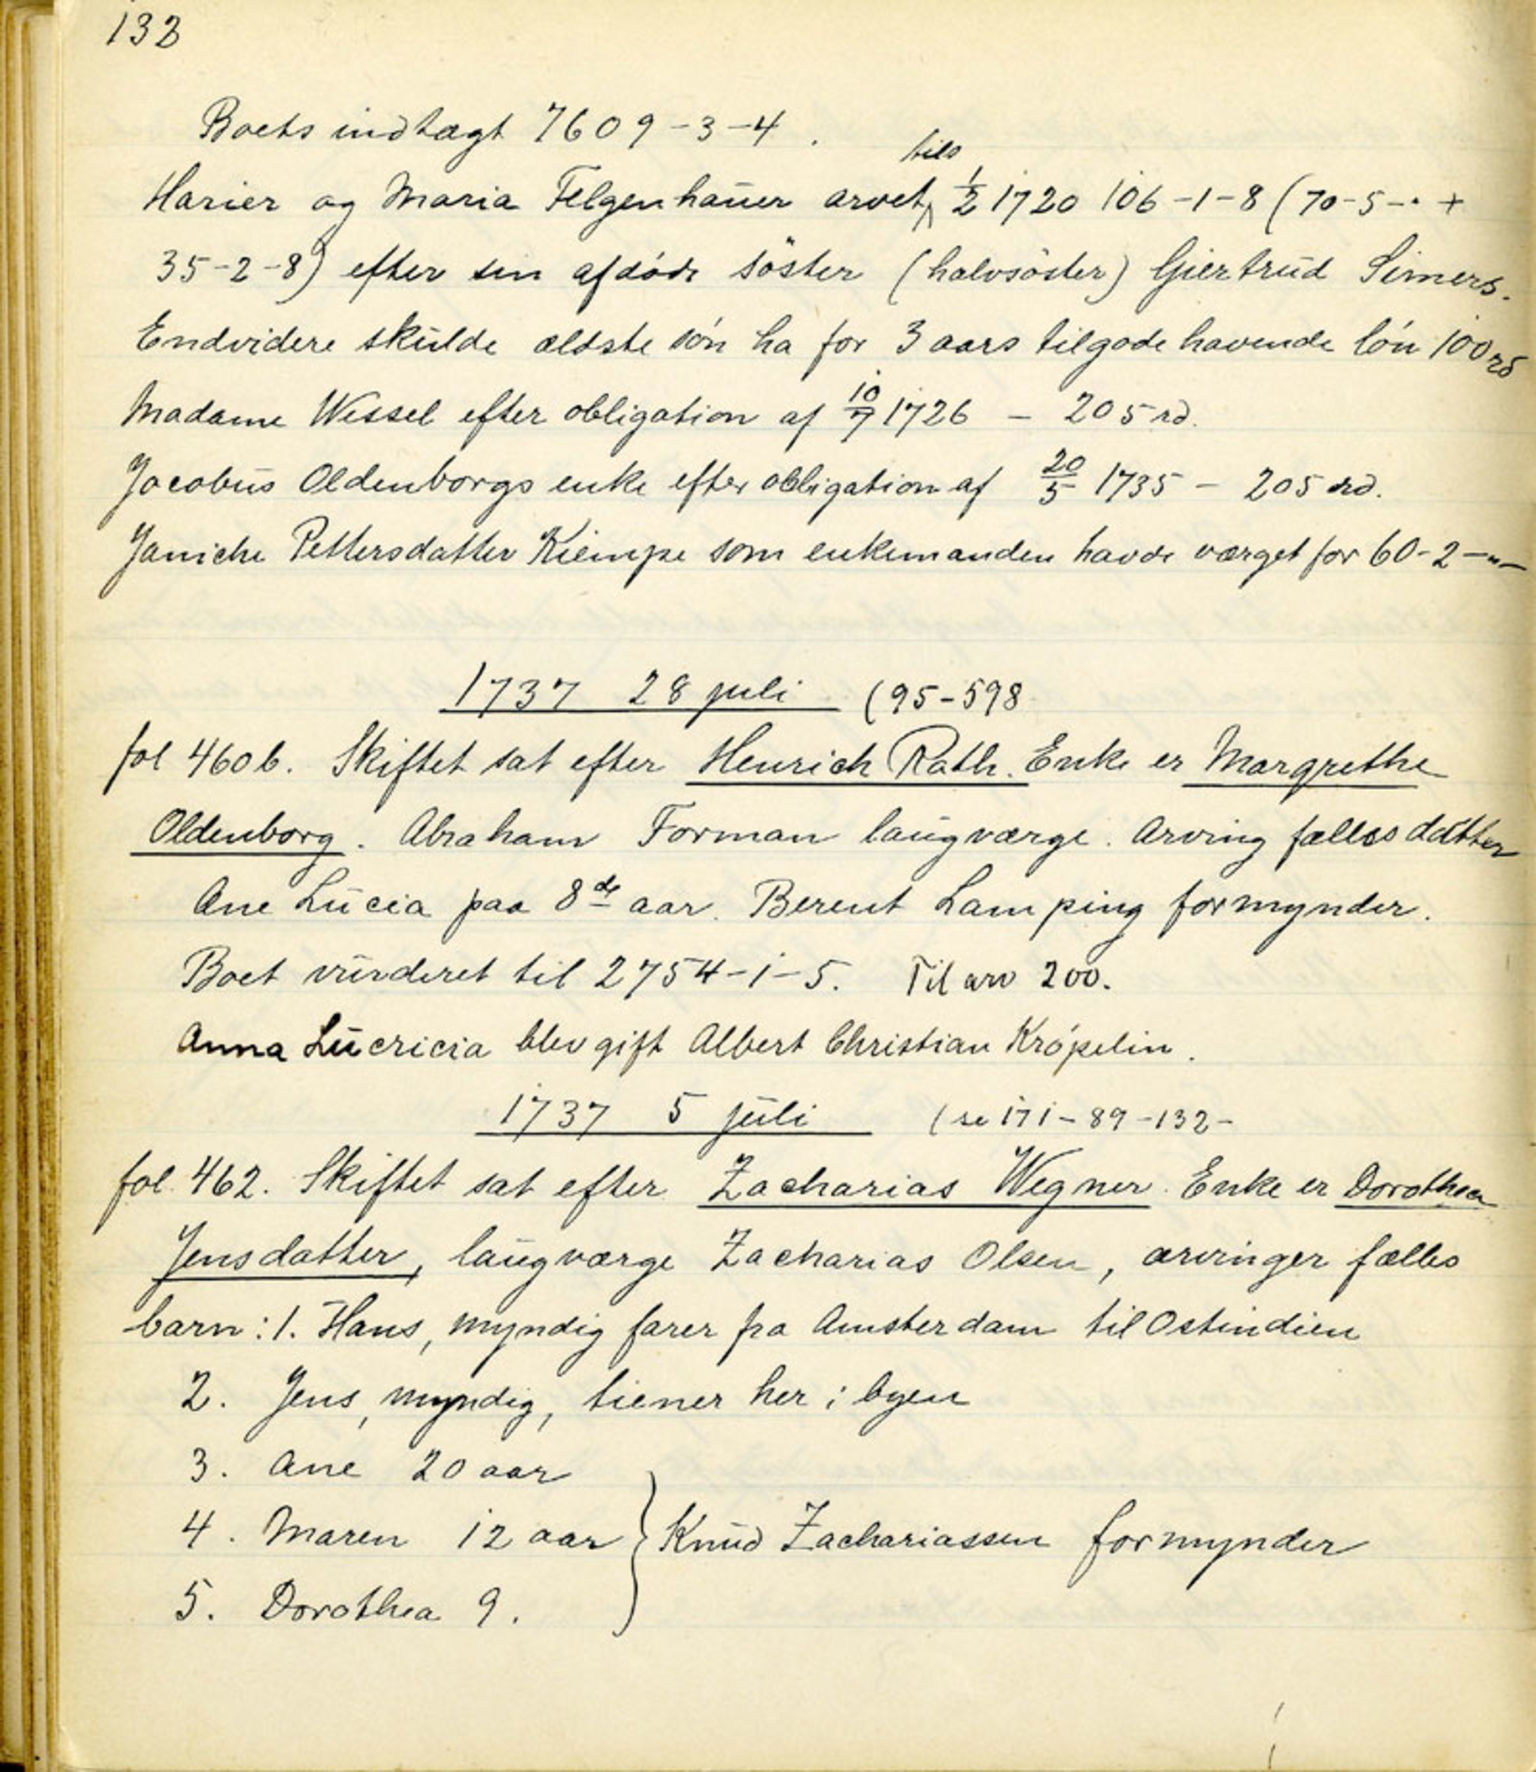 132
Boets indtægt 7609-3-4.
tils
Harier og Maria Felgenhauer arvet 1/2 1720 106-1-8 (70-5-" +
35-2-8) efter sin afdöde söster (halvsöster) Giertrud Simers.
Endvidere skulde ældste sön ha for 3 aars tilgode havende lön 100 rd
Madame Wessel efter obligation af 10/7 1726 - 205 rd.
Jacobus Oldenborgs enke efter obligation af 20/5 1735 - 205 rd.
Janiche Pettersdatter Kiempe som enkemanden havde værget for 60-2-"-
1737 28 juli (95-598
fol 460b. Skiftet sat efter Henrich Rath. Enke er Margrethe
Oldenborg. Abraham Forman laugværge. Arving fælles datter
Ane Lucia paa 8de aar. Berent Lamping formynder.
Boet vurderet til 2754-1-5. Til arv 200.
Anna Lucricia blev gift Albert Christian Kröpelin.
1737 5 juli (se 171-89-132-
fol. 462. Skiftet sat efter Zacharias Wegner. Enke er Dorothea
Jensdatter, laugværge Zacharias Olsen, arvinger fælles
barn: 1. Hans, myndig farer fra Amsterdam til Ostindien
2. Jens, myndig, tiener her i byen
3. Ane 20 aar
4. Maren 12 aar } Knud Zachariassen formynder
5. Dorothea 9.